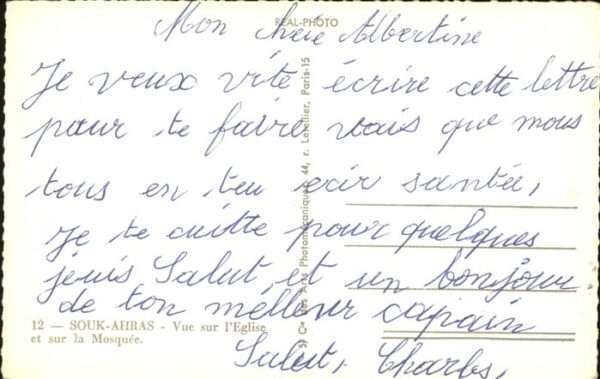 REAL-PHOTO
Mon chèie Albertine
Je veux vite écrire cette lettre
pour te faire vais que mous
tous en teu eair santée,
Je te cuitte pour quelques
jeuis Salut, et un bonjour.
de ton mélleur capain
Salut, Charles,
12 — SOUK-AHRAS - Vue sur l'Eglise
et sur la Mosquée.
des Arts Photomécaniques, 44, r. Letellier, Paris-15